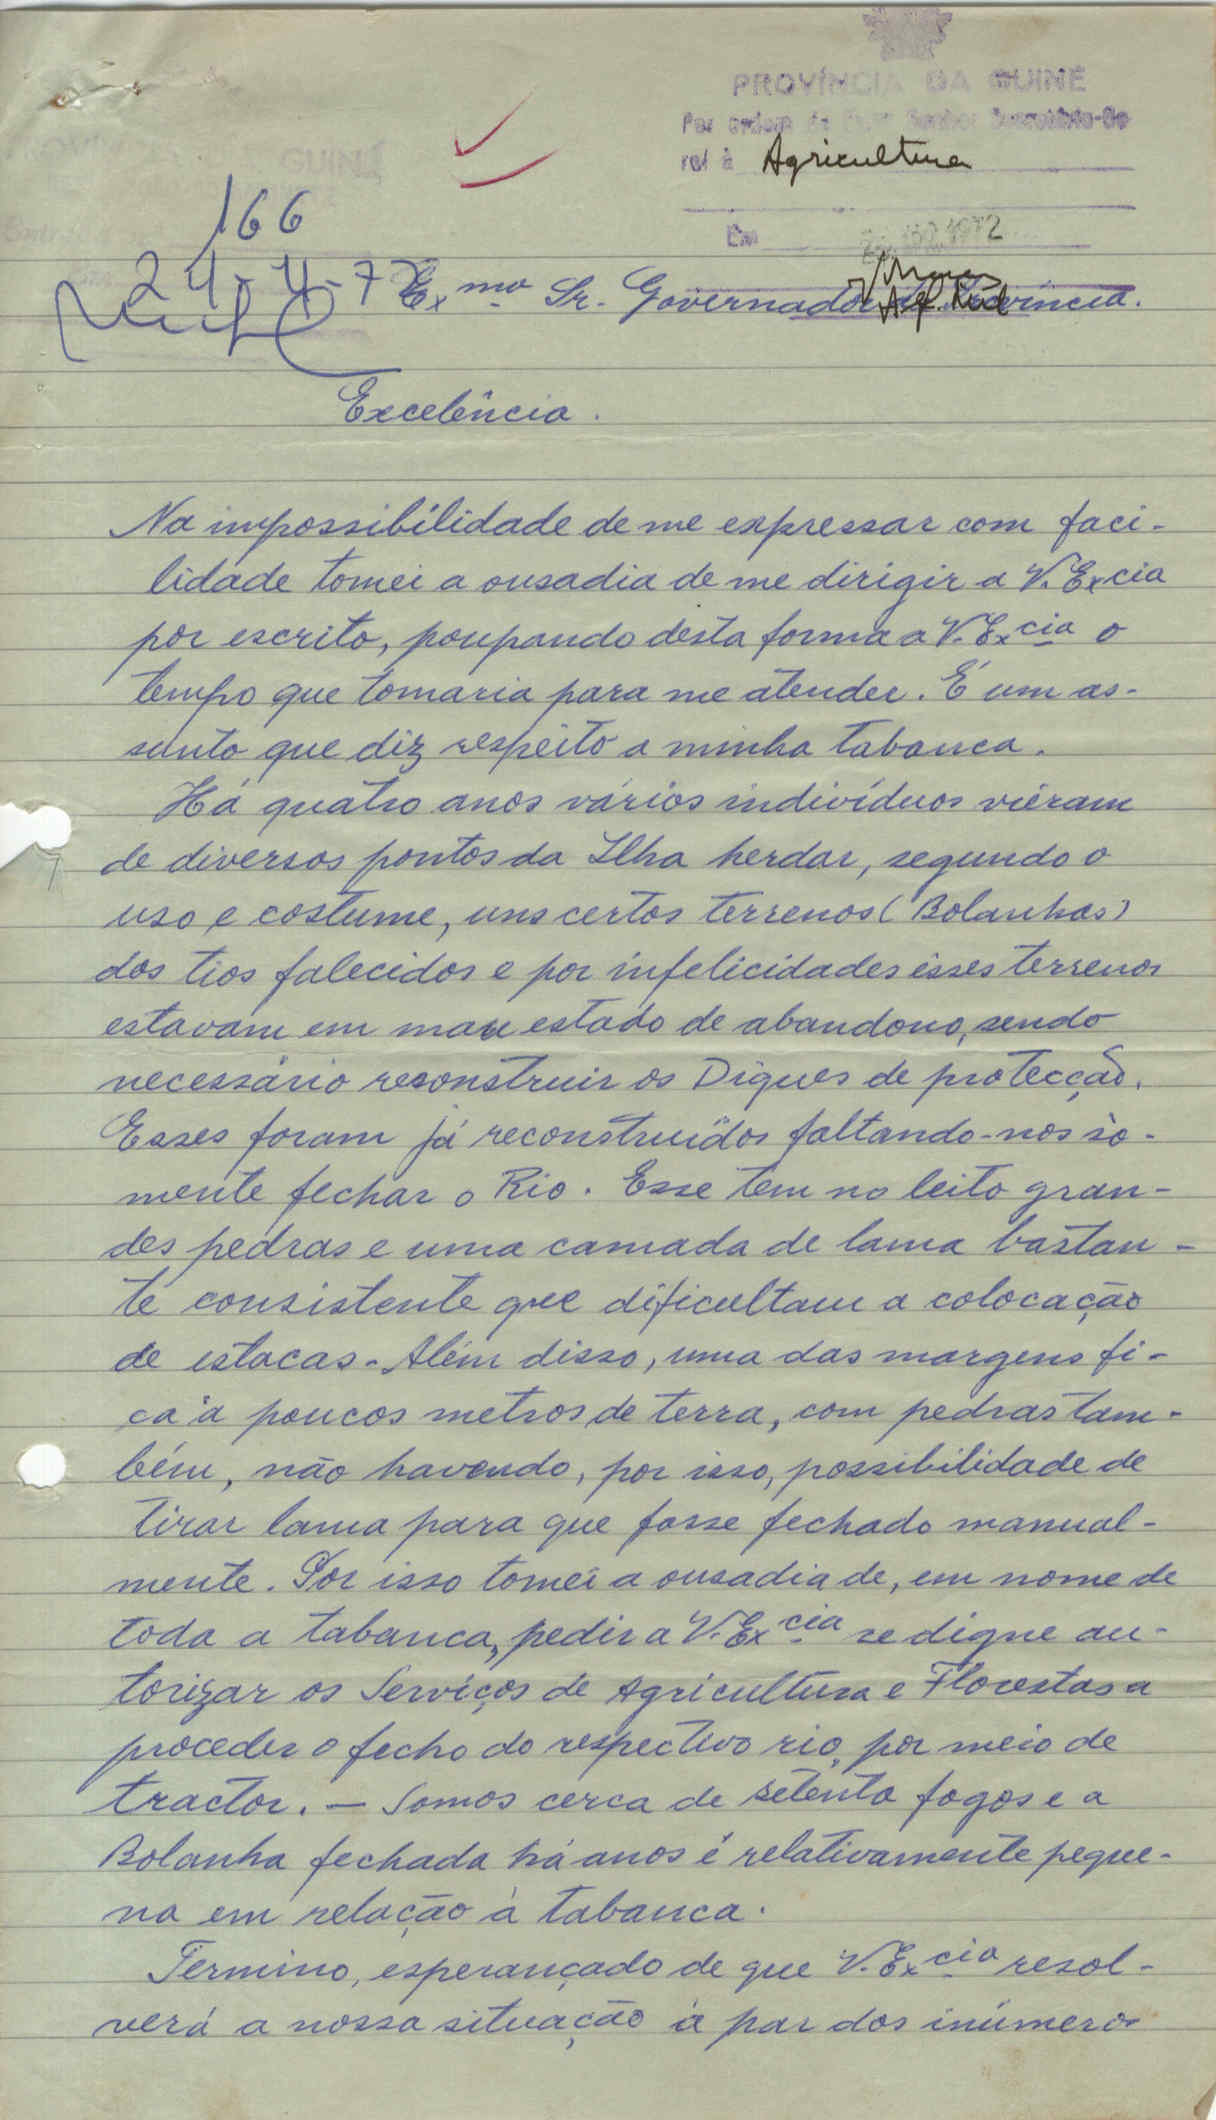 PROVÍNCIA DA GUINÉ
GUINÉ
Por ordem de Senhor
Agricultura
166
Em 1972
24-4-72
Exmo Sr. Governador da Província.
Excelência.
Na impossibilidade de me expressar com faci-
lidade tomei a ousadia de me dirigir a V. Excia
por escrito, poupando desta forma a V. Excia o
tempo que tomaria para me atender. É um as-
sunto que diz respeito a minha tabanca.
Há quatro anos vários indivíduos vieram
de diversos pontos da Ilha herdar, segundo o
uso e costume, uns certos terrenos (Bolanhas)
dos tios falecidos e por infelicidades êsses terrenos
estavam em mau estado de abandono, sendo
necessário reconstruir os Diques de protecção.
Esses foram já reconstruídos faltando-nos sò-
mente fechar o Rio. Esse tem no leito gran-
des pedras e uma camada de lama bastan-
te consistente que dificultam a colocação
de estacas. Além disso, uma das margens fi-
ca à poucos metros de terra, com pedras tam-
bém, não havendo, por isso, possibilidade de
tirar lama para que fosse fechado manual-
mente. Por isso tomei a ousadia de, em nome de
toda a tabanca, pedir a V. Excia se digne au-
torizar os Serviços de Agricultura e Florestas a
proceder o fecho do respectivo rio, por meio de
tractor. — Somos cerca de setenta fogos e a
Bolanha fechada há anos é relativamente peque-
na em relação à tabanca.
Termino, esperançado de que V. Excia resol-
verá a nossa situação à par dos inúmeros